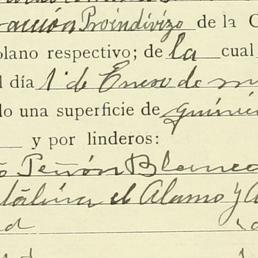 Proindivizo de la C
plano respectivo; de la cual
l día 1º de Enero de m
do una superficie de quinien
y por linderos:
o Peñón Blanco
el Alamo y A